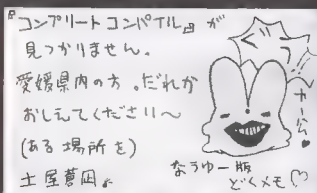 『コンプリートコンパイル』が
見つかりません。
愛媛県内の方。だれか
おしえてください〜
(ある場所を)
土屋
ぐう
なうゆー版
どくメモ♡